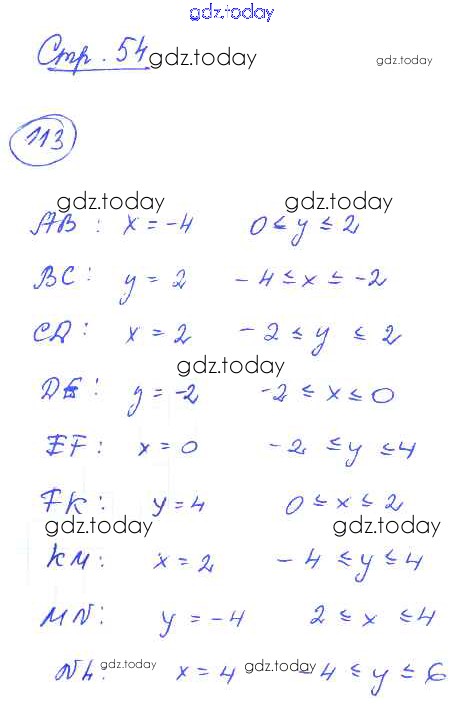 gdz.today
Стр. 54 gdz.today gdz.today
113
gdz.today gdz.today
AB: x = -4 0 ≤ y ≤ 2
BC: y = 2 -4 ≤ x ≤ -2
CD: x = 2 -2 ≤ y ≤ 2
gdz.today
DE: y = -2 -2 ≤ x ≤ 0
EF: x = 0 -2 ≤ y ≤ 4
FK: y = 4 0 ≤ x ≤ 2
gdz.today gdz.today
KM: x = 2 -4 ≤ y ≤ 4
MN: y = -4 2 ≤ x ≤ 4
NL: gdz.today x = 4 gdz.today -4 ≤ y ≤ 6